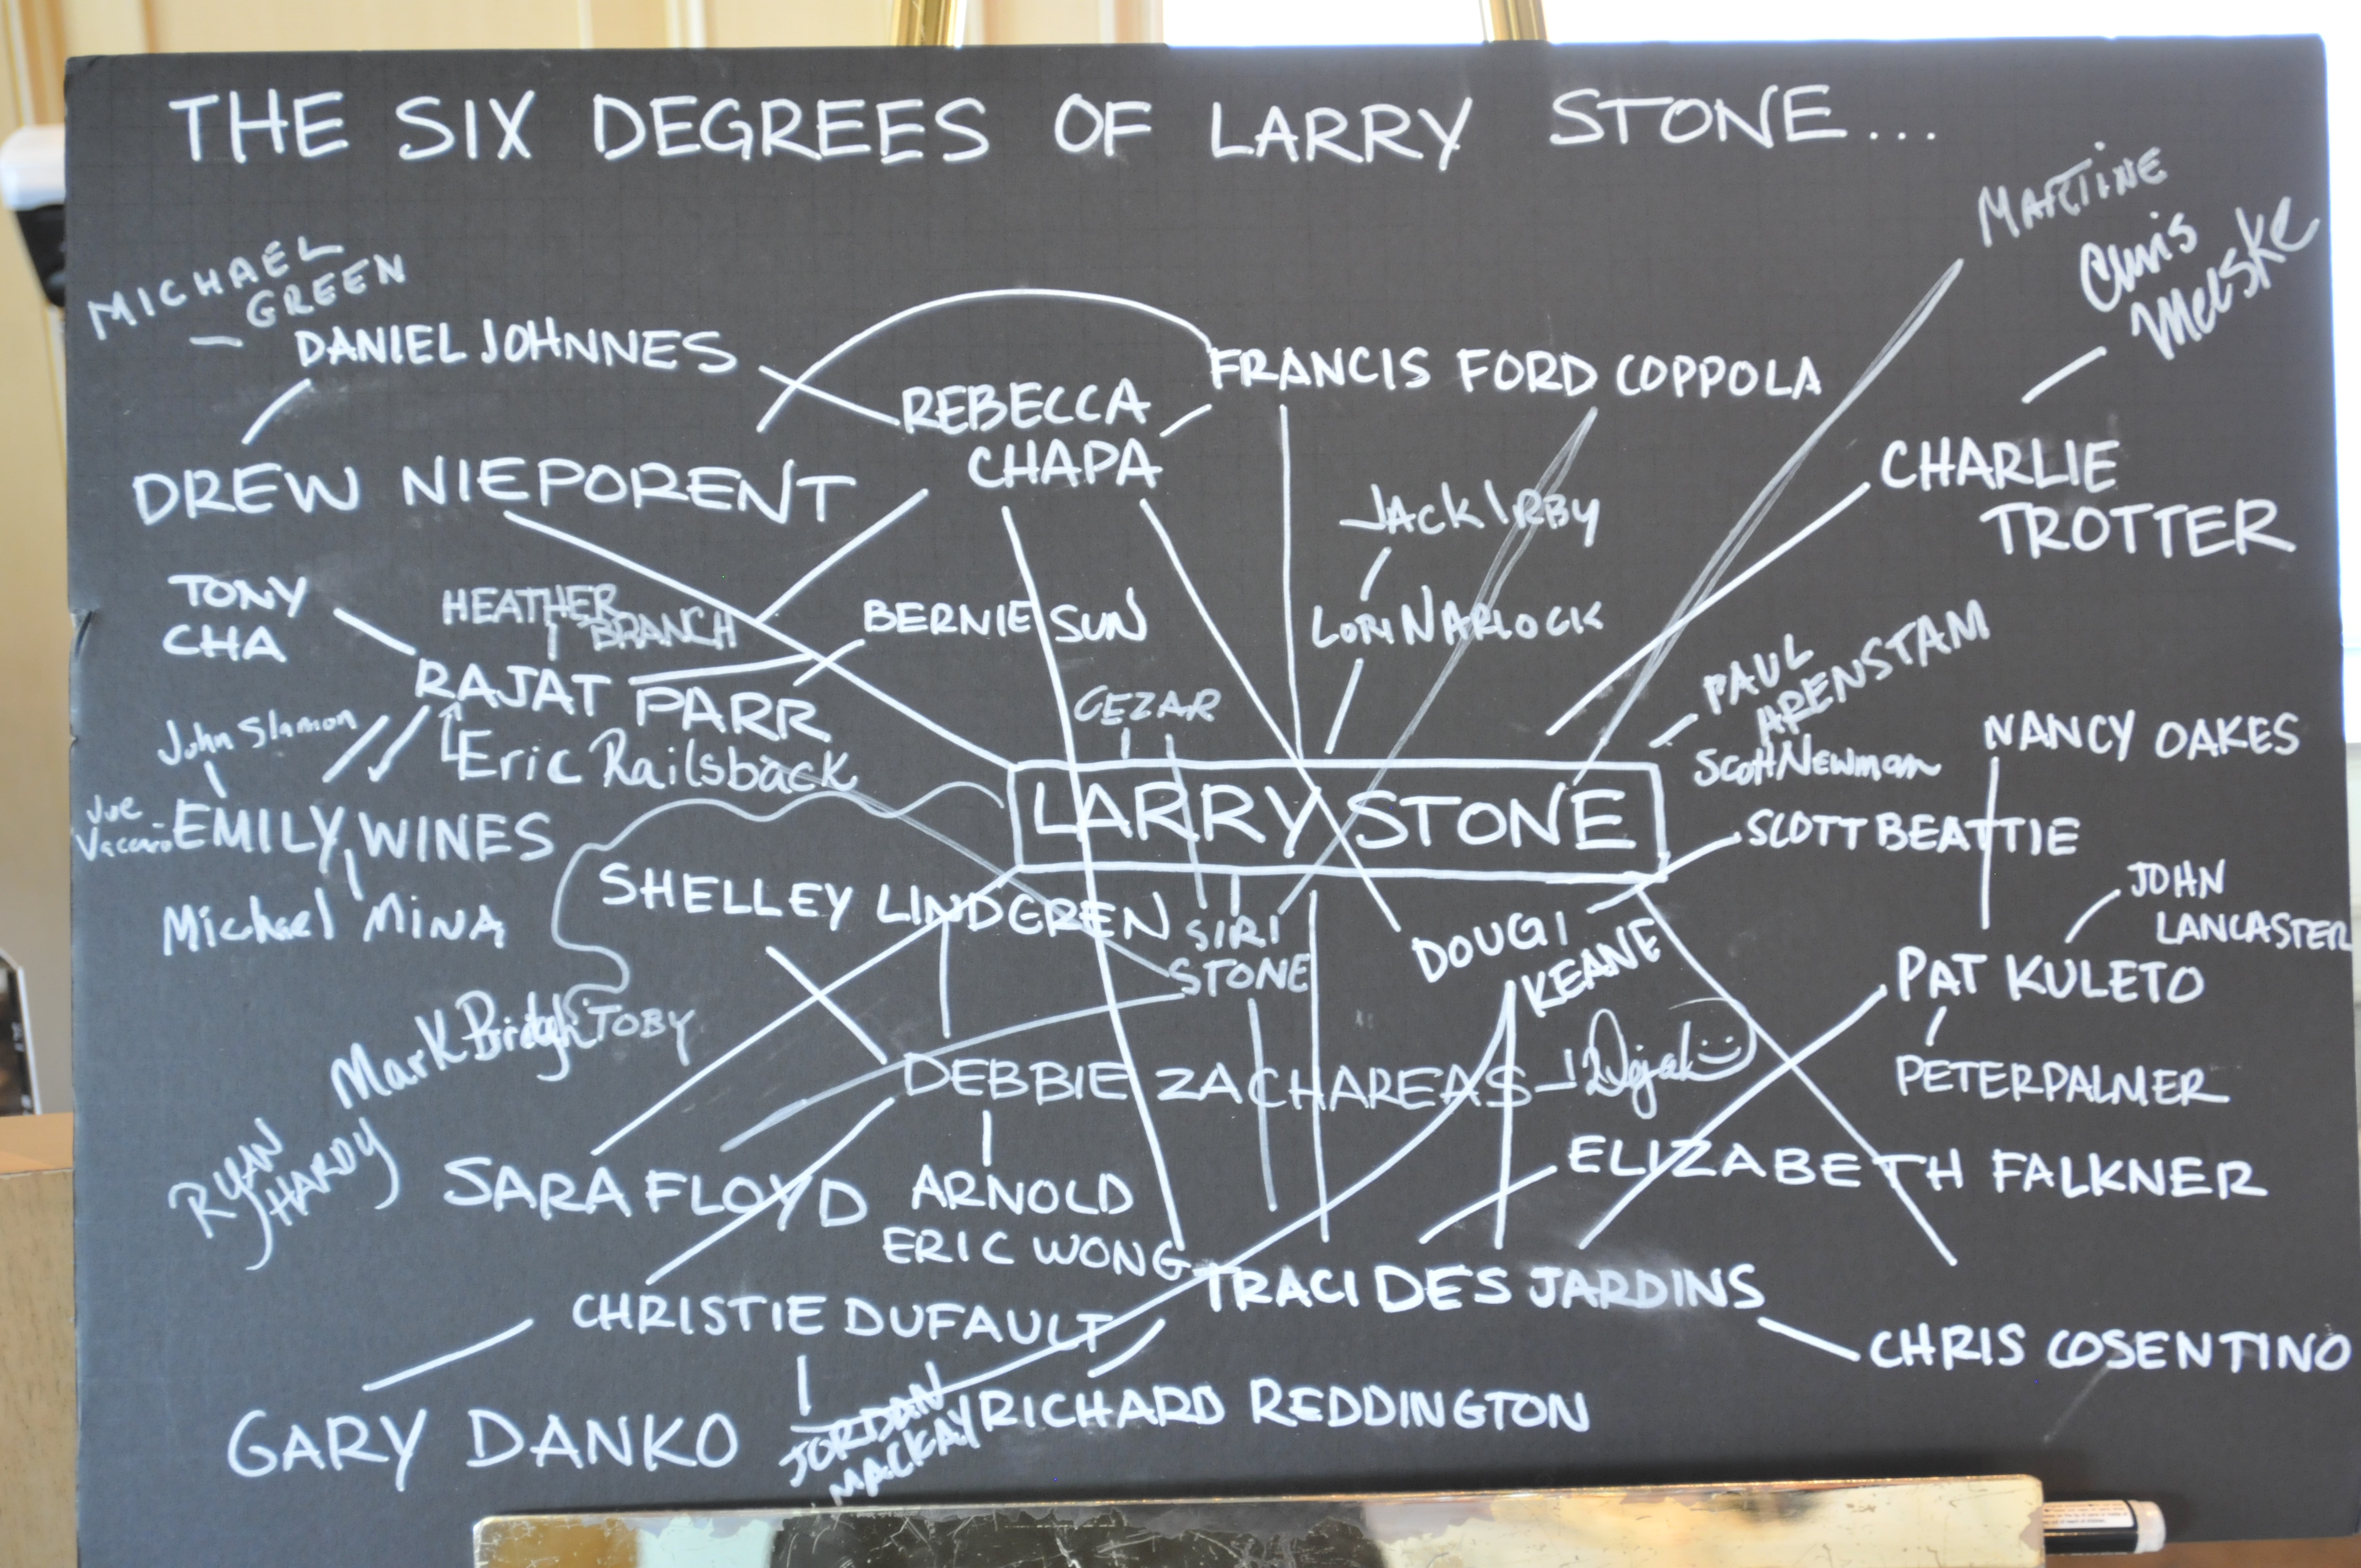 THE SIX DEGREES OF LARRY STONE...
MARTINE
Chris
Meeske
MICHAEL
GREEN
DANIEL JOHNNES
REBECCA
CHAPA
FRANCIS FORD COPPOLA
DREW NIEPORENT
JACK IRBY
CHARLIE
TROTTER
TONY
CHA
HEATHER
BRANCH
BERNIE SUN
LORI NARLOCK
RAJAT PARR
CEZAR
PAUL
ARENSTAM
John Slamon
Eric Railsback
Scott Newman
NANCY OAKES
Joe
Vaccaro
EMILY WINES
LARRY STONE
SCOTT BEATTIE
Michael MINA
SHELLEY LINDGREN
SIRI
STONE
DOUGI
KEANE
JOHN
LANCASTER
PAT KULETO
Mark
TOBY
DEBBIE ZACHAREAS
PETER PALMER
RYAN
HARDY
SARA FLOYD
ARNOLD
ERIC WONG
ELIZABETH FALKNER
CHRISTIE DUFAULT
TRACI DES JARDINS
CHRIS COSENTINO
GARY DANKO
JORDAN
MACKAY
RICHARD REDDINGTON